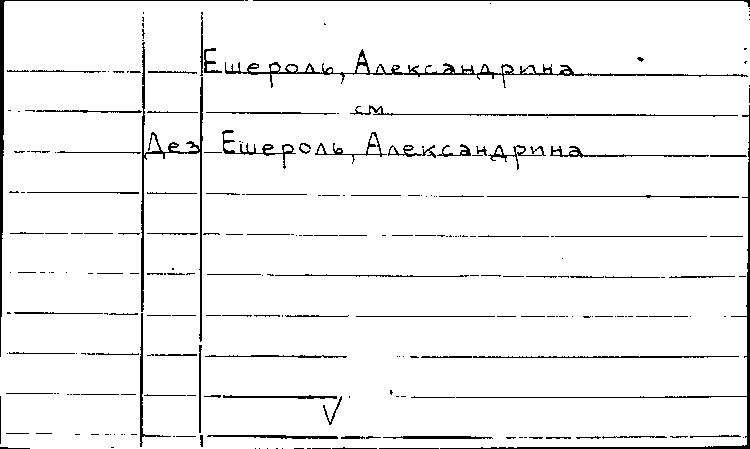 Ешероль, Александрина
см.
Дез Ешероль, Александрина